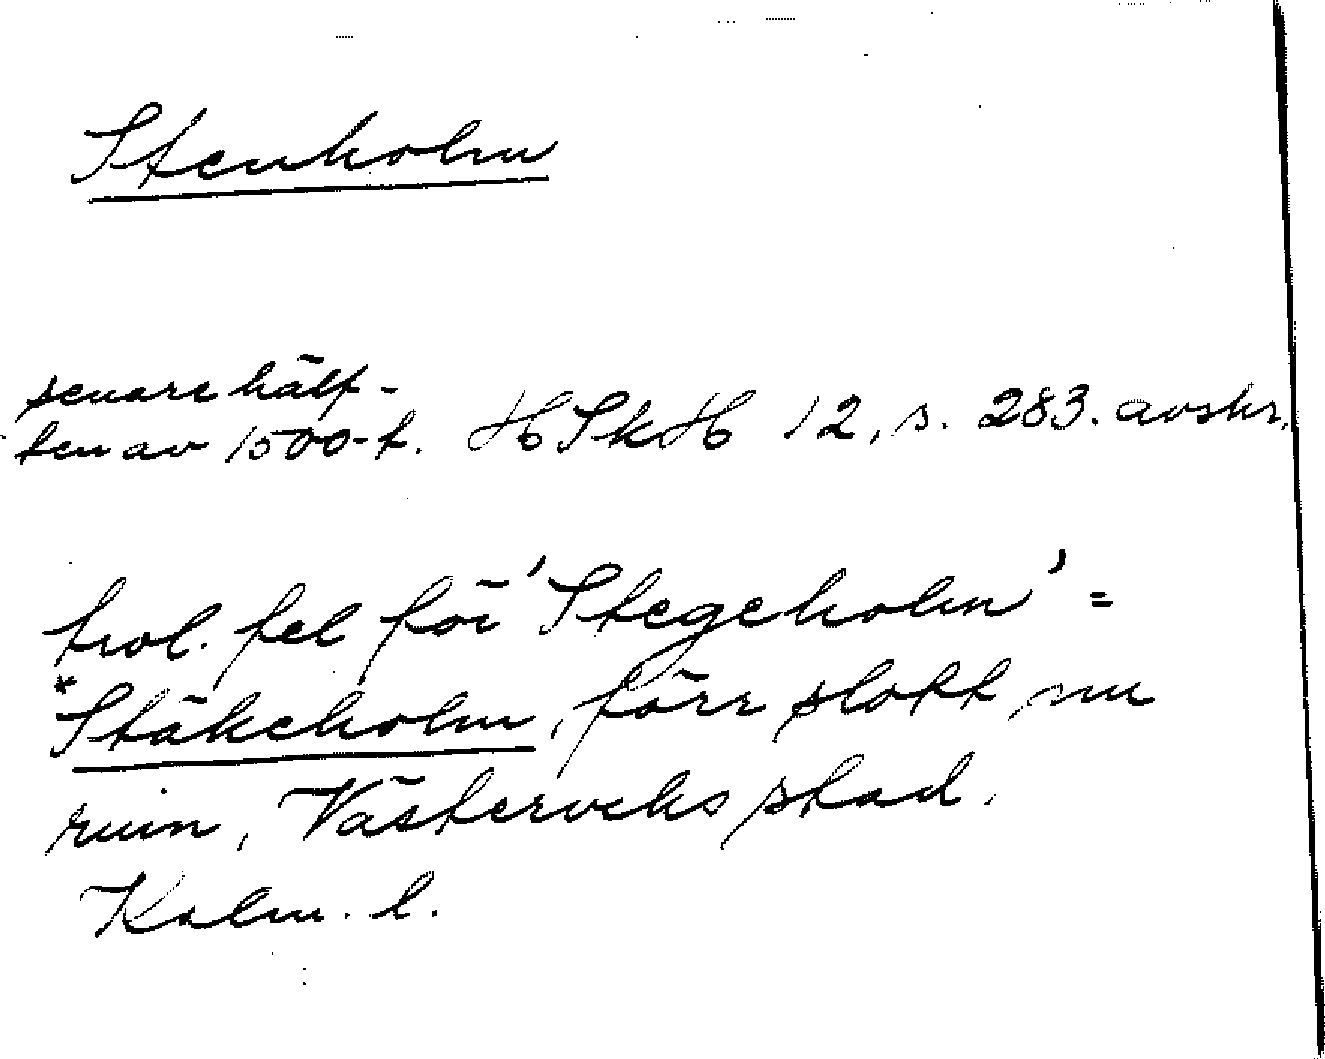 Stenholm
senare hälf-
ten av 1500-t. HSkH 12, s. 283. avskr.
trol. fel för 'Stegeholm' =
*Stäkeholm, förr slott, nu
ruin, Västerviks stad.
Kalm. l.